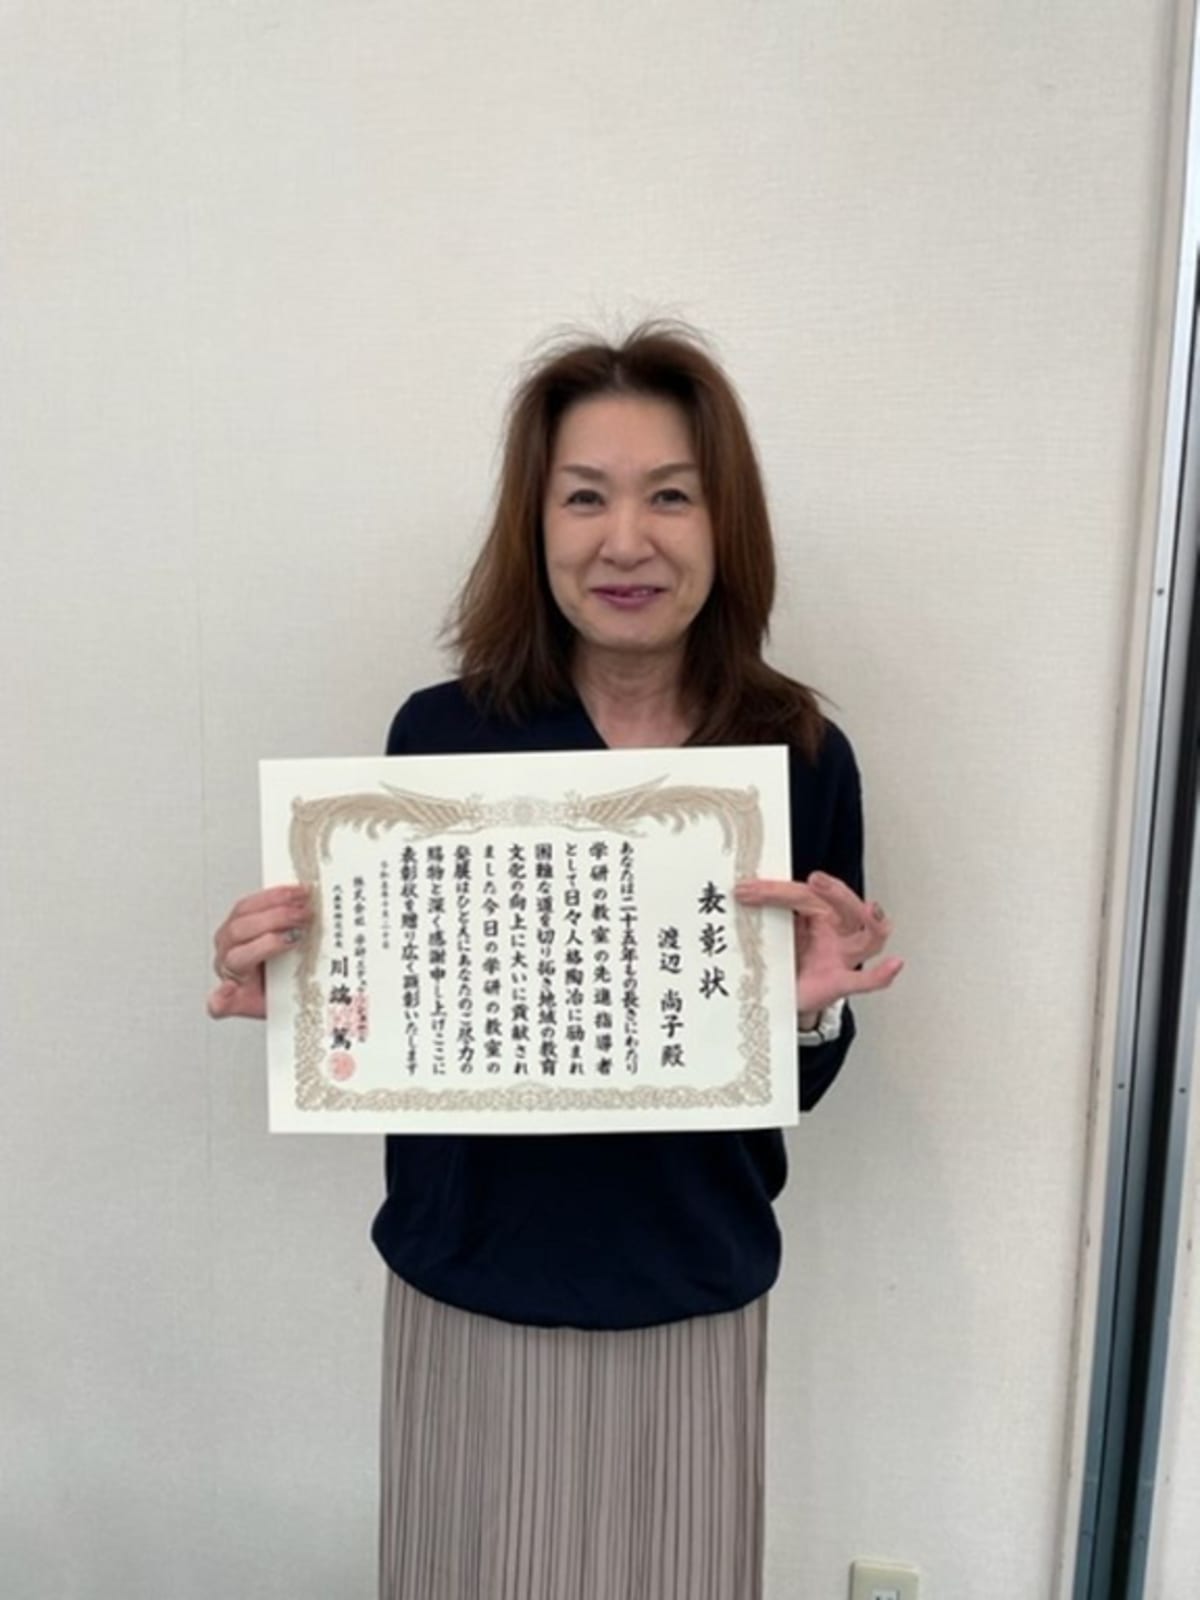 表彰状
渡辺 尚子殿
あなたは二十五年もの長きにわたり
学研の教室の先進指導者
として日々人格陶冶に励まれ
困難な道を切り拓き地域の教育
文化の向上に大いに貢献され
ました今日の学研の教室の
発展はひとえにあなたのご尽力の
賜物と深く感謝申し上げここに
表彰状を贈り広く顕彰いたします
株式会社 学研エデュケーショナル
代表取締役社長 川端 篤